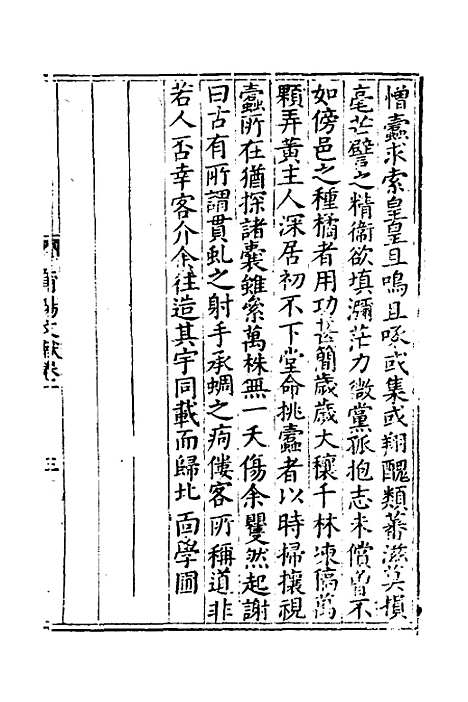 憎蠹求索皇皇且鳴且啄或集或翔醜類蕃滋莫損
毫芒譬之精衞欲填瀰茫力微黨孤抱志未償曾不
如傍邑之種橘者用功甚簡歲歲大穰千林竦偊萬
顆弄黃主人深居初不下堂命挑蠹者以時掃攘視
蠹所在猶探諸囊雖縈萬株無一夭傷余矍然起謝
曰古有所謂貫虱之射手承蜩之痀僂客所稱道非
若人否幸客介余往造其宇同載而歸北面學圃
文獻卷
三